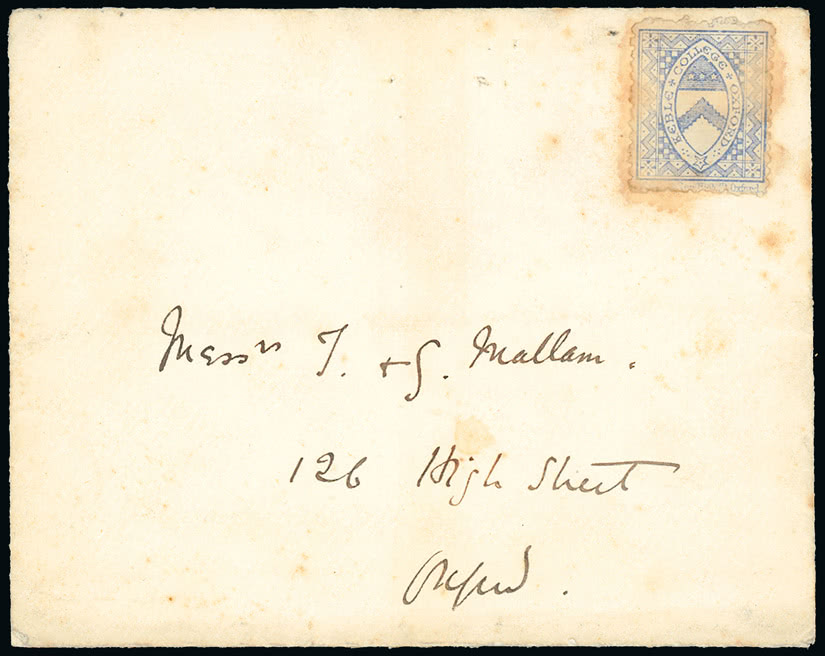 KEBLE COLLEGE OXFORD
Messrs T. & G. Mallam.
126 High Street
Oxford.